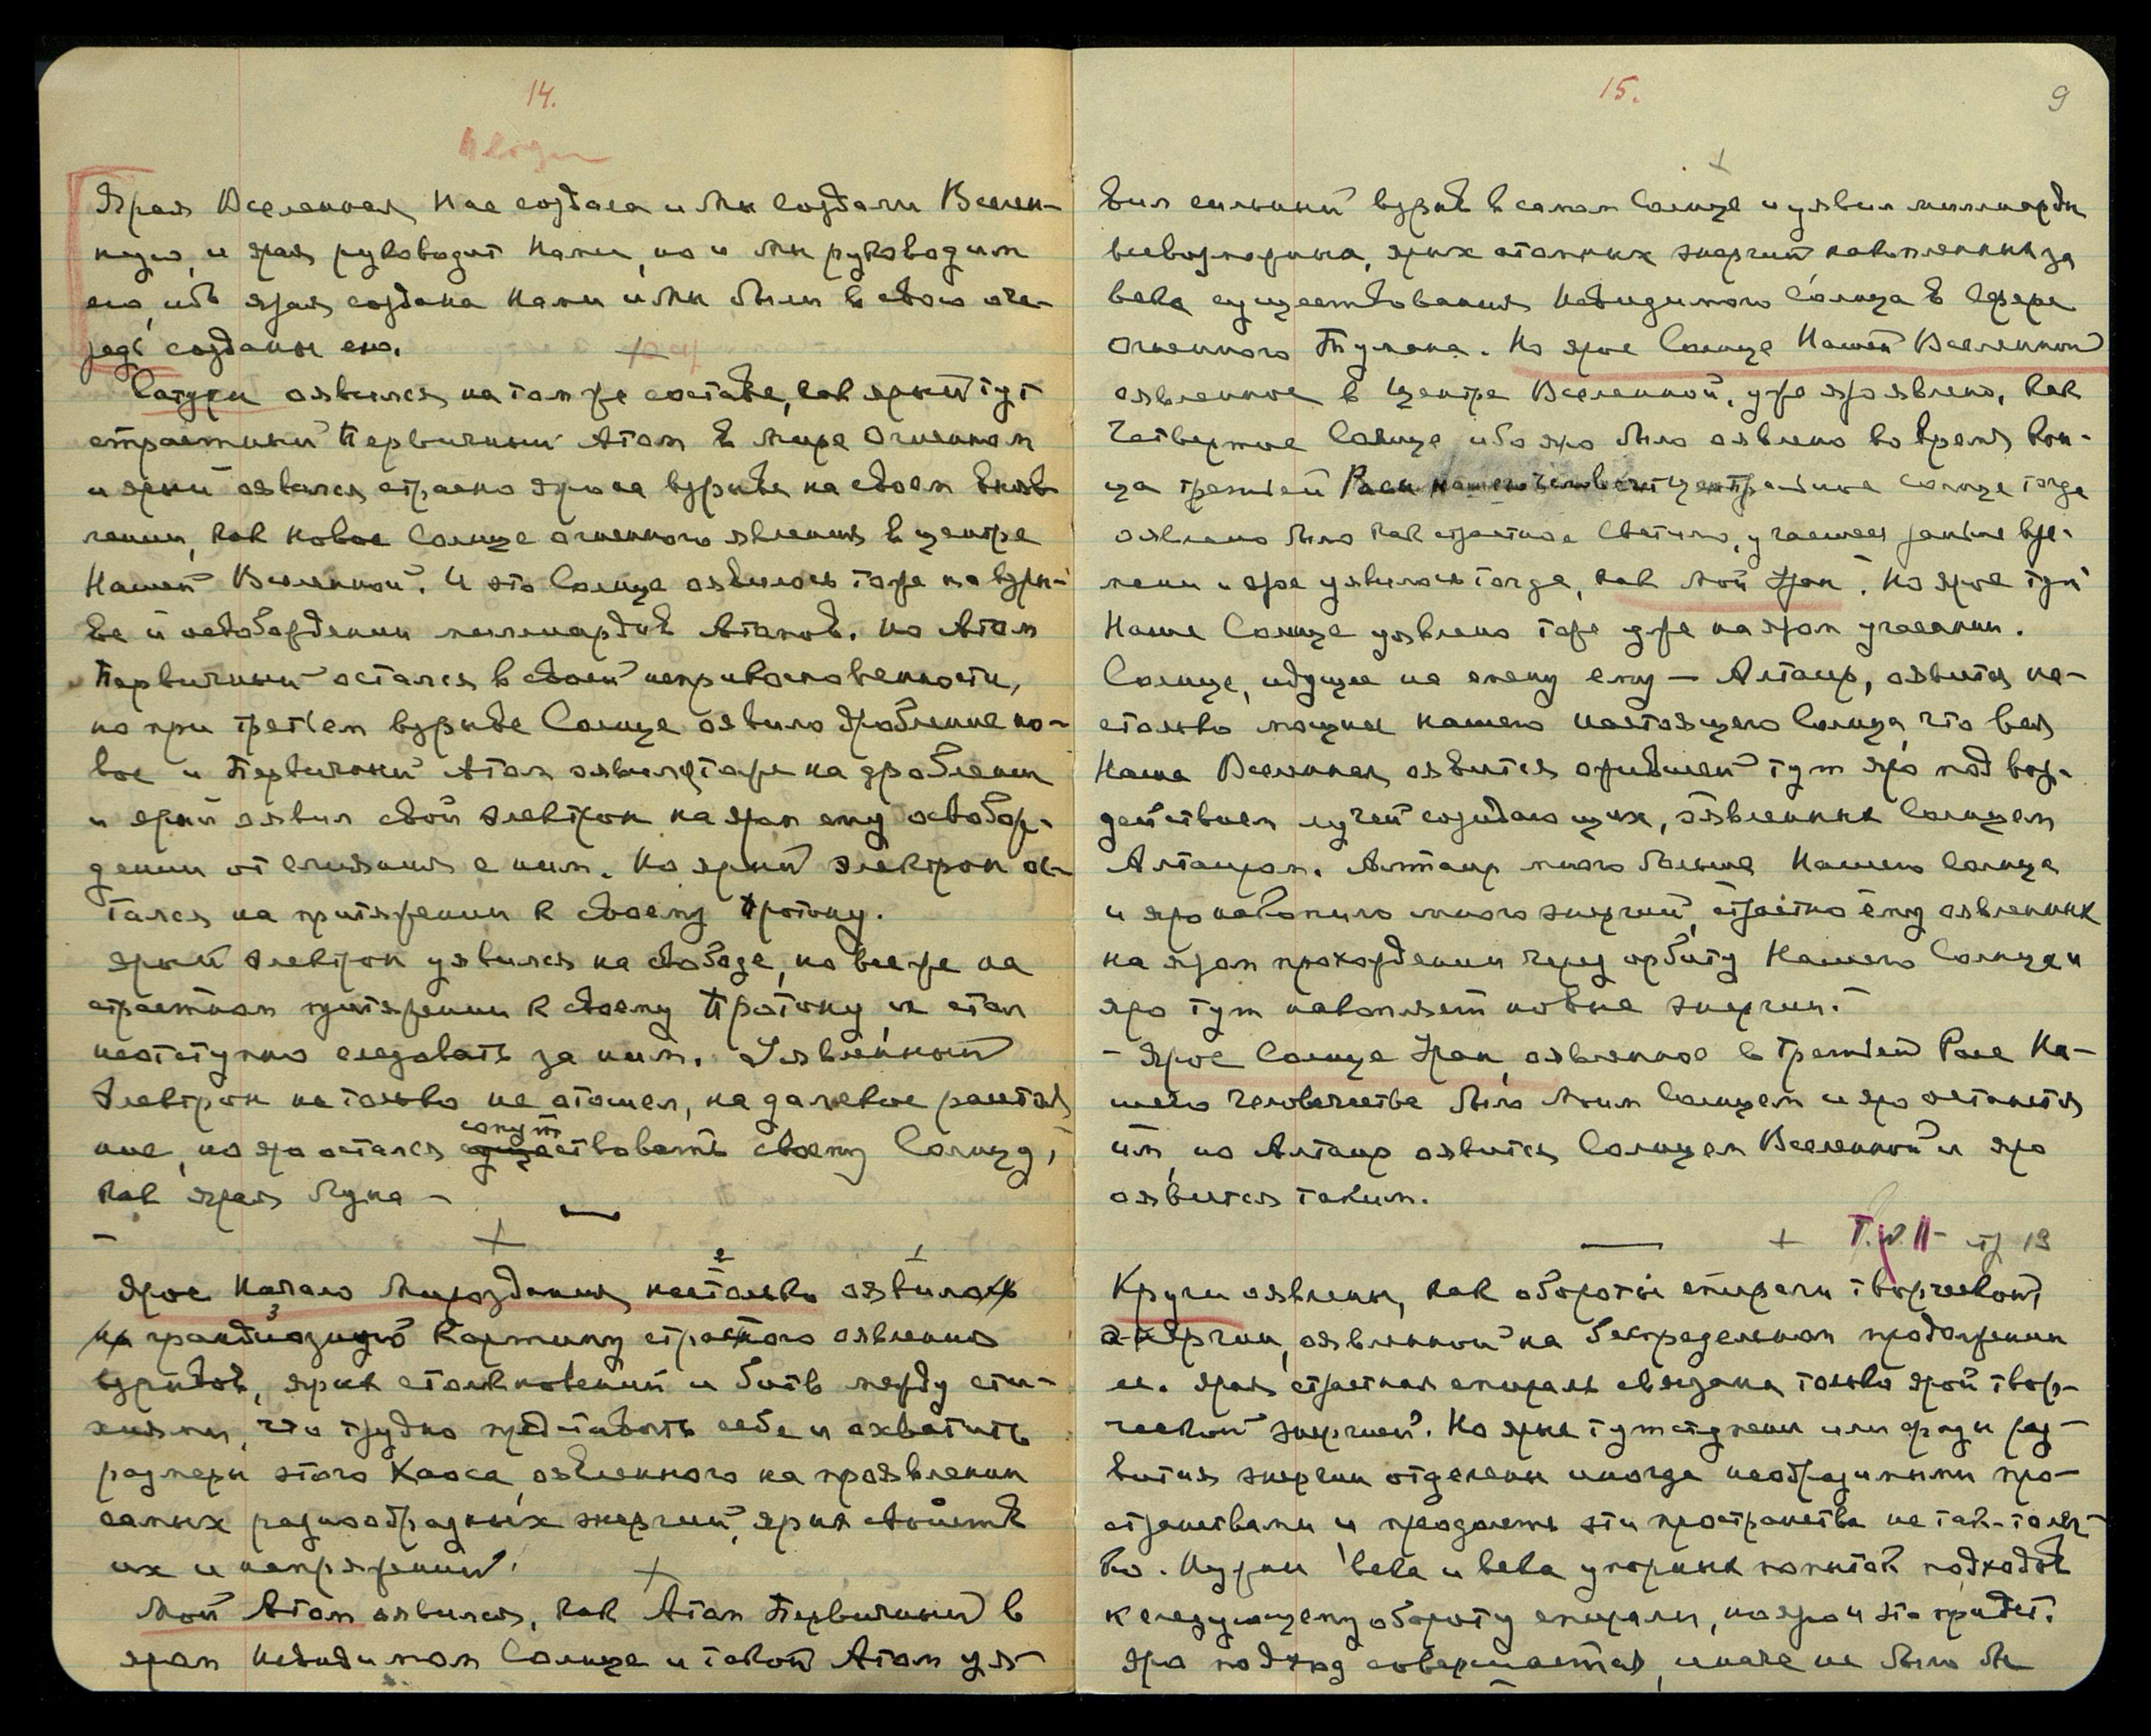 14.
Ярая Вселенная Нас создала и Мы создали Вселен-
ную, и ярая руководит Нами, но и Мы руководим
ею, ибо ярая создана Нами и Мы были в свою оче-
редь созданы ею.
Сатурн оявился на том же составе, как ярый тут
страстный Первичный Атом в Мире Огненном
и ярый оявился страстно яро на взрыве на своем
как Новое Солнце огненного явления в центре
Нашей Вселенной. И это Солнце оявилось тоже на взры-
ве и освобождении миллиардов Атомов. Но Атом
Первичный остался в своей неприкосновенности,
но при третьем взрыве Солнце оявило дробление но-
вое и Первичный Атом оявился тоже на дроблении
и ярый оявил свой электрон на яром ему освобож-
дении от слияния с ним. Но ярый электрон ос-
тался на притяжении к своему Протону.
Ярый электрон уявился на свободе, но все же на
страстном притяжении к своему Протону и стал
неотступно следовать за ним. Уявленный
Электрон не только не отошел на далекое расстоя-
ние, но яро остался сопутствовать своему Солнцу,
как ярая Луна –
Ярое Начало Мироздания настолько оявило
грандиозную Картину страстного явления
взрывов, ярых столкновений и битв между сти-
хиями, что трудно представить себе и охватить
размеры этого Хаоса, оявленного на проявлении
самых разнообразных энергий, ярых свойств
их и напряжений.
Мой Атом оявился, как Атом Первичный в
яром Невидимом Солнце и такой Атом уя-
15.
9
вил сильный взрыв в самом Солнце и уявил миллиарды
всевозможных, ярых атомных энергий, накопленных за
века существования Невидимого Солнца в Сфере
Огненного Тумана. Но ярое Солнце Нашей Вселенной
оявленное в Центре Вселенной, уже яро явлено, как
Четвертое Солнце ибо яро было оявлено во время кон-
ца третьей Расы нашего человечест центральное солнце тогда
оявлено было как страстное Светило, угасшее раньше вре-
мени и ярое уявилось тогда, как Мой Уран. Но ярое тут
Наше Солнце уявлено тоже уже на яром угасании.
Солнце, идущее на смену ему – Альтаир, оявится на-
столько мощнее нашего настоящего Солнца, что вся
Наша Вселенная оявится ожившей тут яро под воз-
действием лучей созидающих, оявленных Солнцем
Альтаиром. Альтаир много больше Нашего Солнца
и яро накопило много энергий, страстно ему оявленных
на яром прохождении через орбиту Нашего Солнца и
яро тут накопляет новые энергии.
– Ярое Солнце Уран, оявленное в Третьей Расе На-
шего Человечества было Моим Солнцем и яро останется
им, но Альтаир оявится Солнцем Вселенной и яро
оявится таким.
Т. II – стр 19
Круги оявлены, как обороты спирали творческой
энергии, оявленной на беспредельном продолжении
ее. Ярая страстная спираль связана только ярой твор-
ческой энергией. Но ярые тут ступени или фазы раз-
вития энергии отделены иногда необозримыми про-
странствами и преодолеть эти пространства не так-то лег-
ко. Нужны века и века упорных попыток подходов
к следующему обороту спирали, но яро и это придет.
Яро подход совершается, иначе не было бы